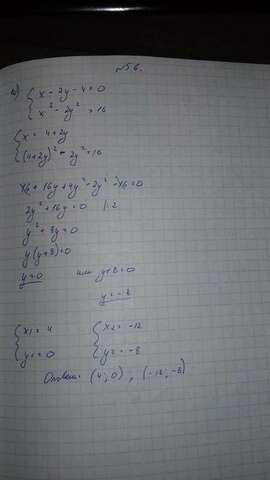 №56.
в) { x - 2y - 4 = 0
x² - 2y² = 16
{ x = 4+2y
(4+2y)² - 2y² = 16
16 + 16y + 4y² - 2y² - 16 = 0
2y² + 16y = 0 |:2
y² + 8y = 0
y(y+8) = 0
y = 0 или y+8 = 0
y = -8
{ x1 = 4 { x2 = -12
y1 = 0 y2 = -8
Ответ: (4; 0), (-12; -8)